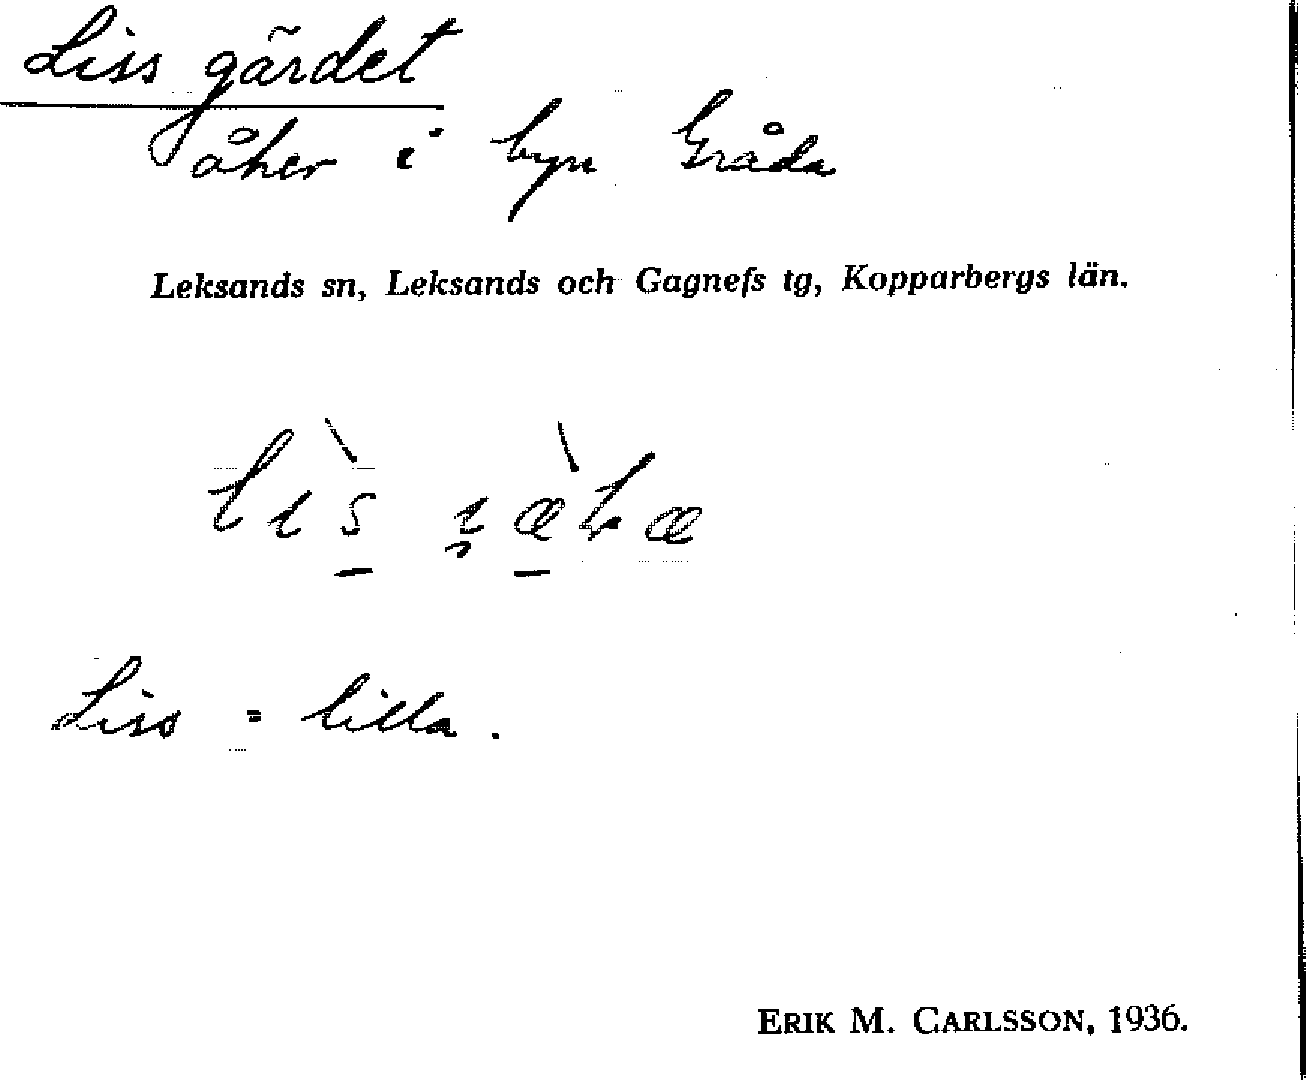 Liss gärdet
åker i byn Gråda
Leksands sn, Leksands och Gagnefs tg, Kopparbergs län.
Liss = lilla.
ERIK M. CARLSSON, 1936.